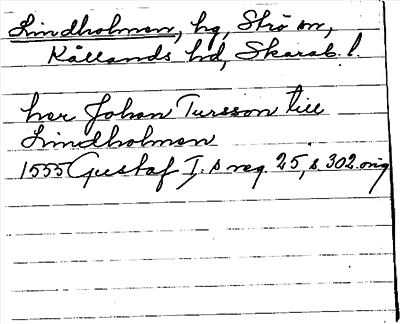 Lindholmen, hg, Strö sn,
Kållands hd, Skarab. l.
her Johan Turesson till
Lindholmen
1555 Gustaf I.s reg. 25, s. 302. orig